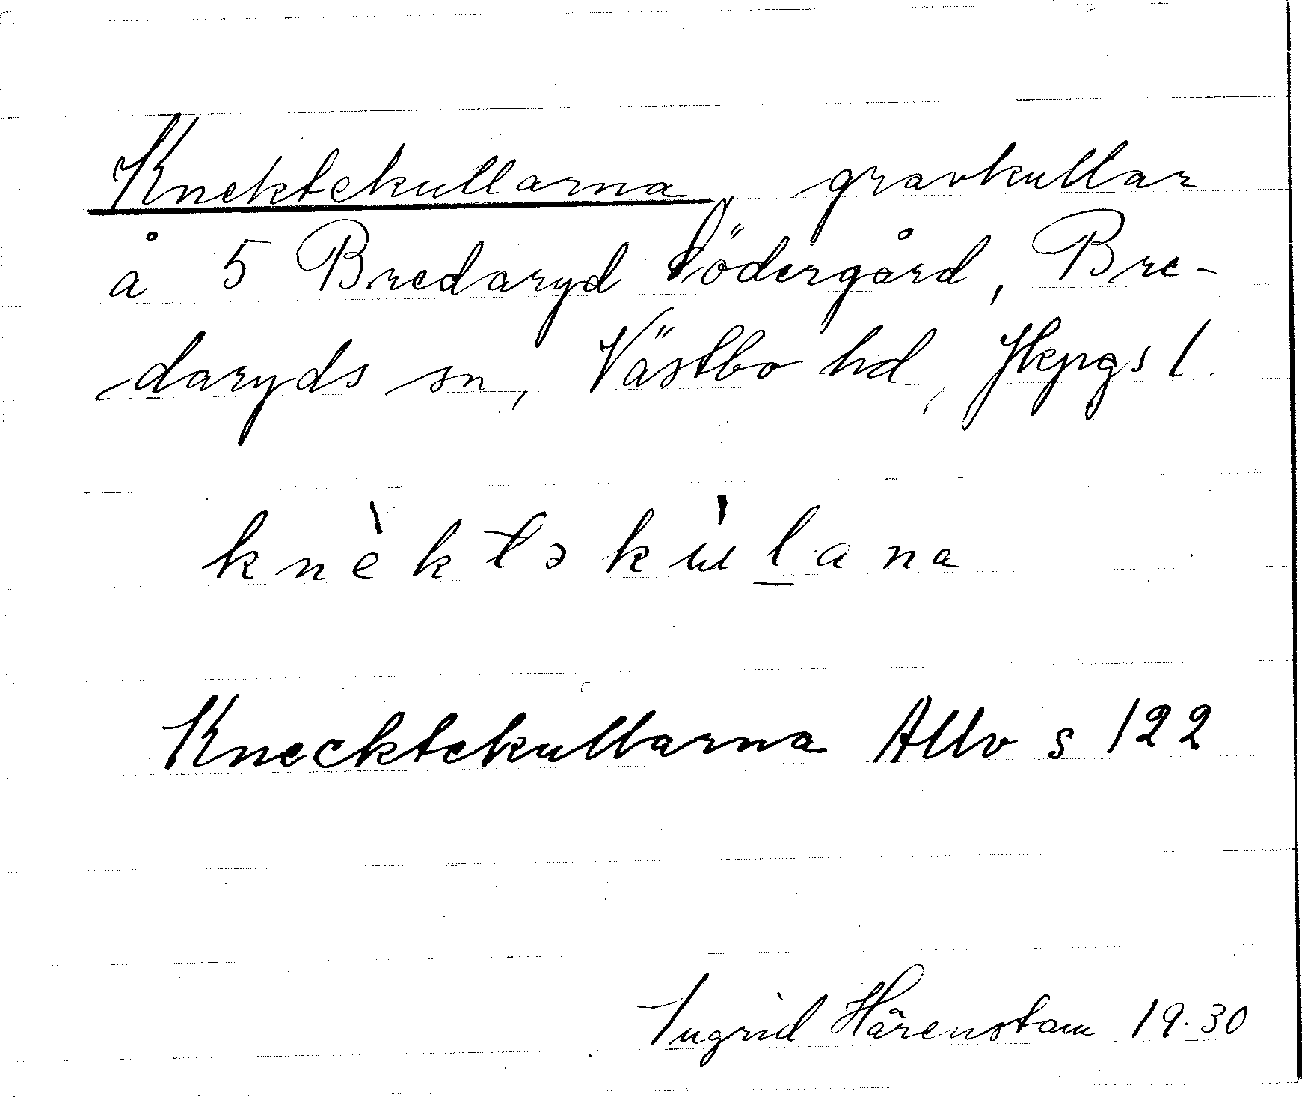 Knektekullarna, gravkullar
å 5 Bredaryd Södergård, Bre-
daryds sn, Västbo hd, Jkpgs l.
knèktəkùl̲ana
Knecktekullarna Allv s 122
Ingrid Härenstam 19.30